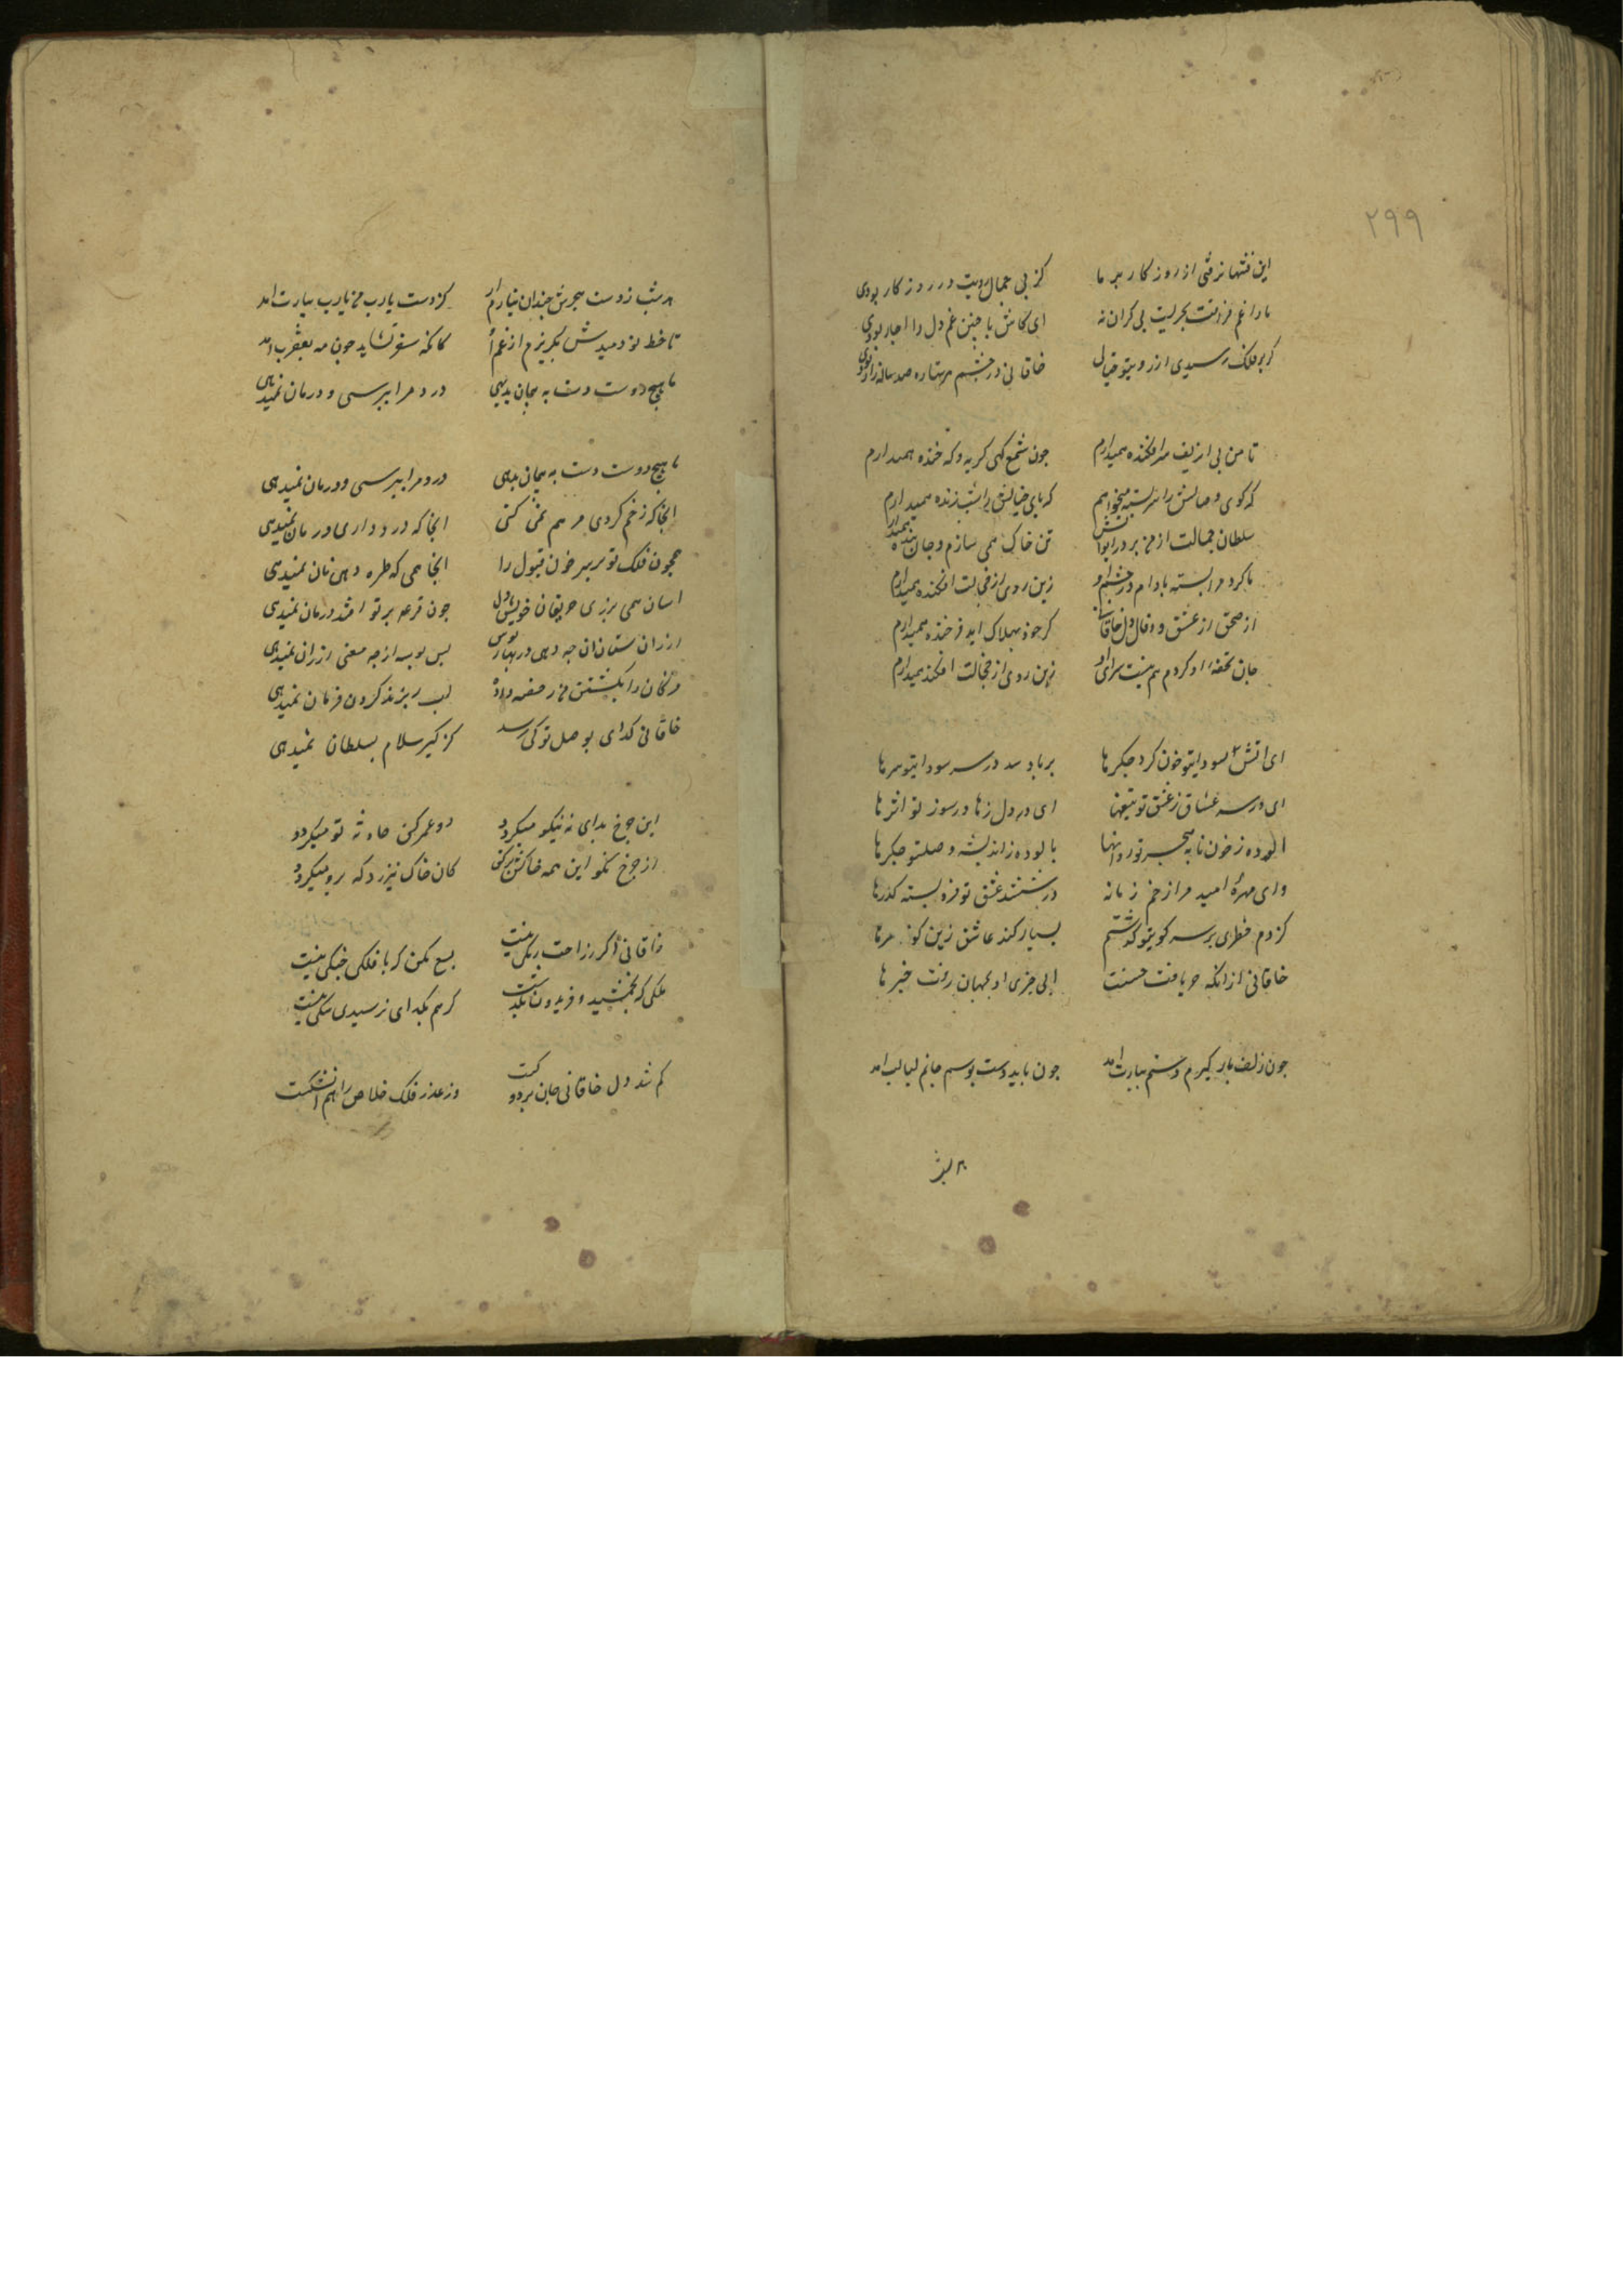 ۲۹۹
این فتنها نرفتی از روزکار بر ما کز بی جمال رویت در روزکار بودی
ما را غم فراقت بحریست بی کران نه ای کاش با چنین غم دل را
کر بر فلک رسیدی از روی تو خیالی خاقانی در چشم هر ستاره صد ساله
تا من پی آن زلف سرافکنده همیدارم جون شمع کهی کریه و که خنده همیدارم
که کوی وصالش را سربسته میخواهم که پای خیالش را شب زنده همیدارم
سلطان جمالست از من بر در ایوانش تن خاک همی سازم و جان بنده همیدارم
تا کرد مرا بسته بادام دو چشم او زین روی از خجالت افکنده همیدارم
از عشق و فال دل خاقانی کر خود بهلاک اید فرخنده همیدارم
جان تحفه او کردم هم نیست سزای او زین روی از خجالت افکنده همیدارم
ای اتش سودای تو خون کرد جکرها بر باد شد در سر سودای تو سرها
ای در سر عشاق ز عشق تو ای در دل زها در سوز تو اثرها
الوده ز خون نابه هجر تو روانها پالوده ز اندیشه وصلتو جکرها
وای مهرهٔ امید مرا زخم زمانه در ششدر عشق تو فرو بسته کذرها
کردم خطری بر سر کوی تو کذشتم بسیار کند عاشق زین کونه
خاقانی از انکه که یافت حسنت الی چزی او بجهان رفت خبرها
جون زلف یار کیرم دستم بیارب امد جون پای دوست بوسم جانم لبالب امد
هر شب
هر شب ز دست هجرش چندان بیارب ایم کز دست یارب من یارب بیارب امد
تا خط نو دمیدش بکریزم از غم کانکه سفر نشاید جون مه بعقرب امد
ما هیج دوست دست به پیمان بدهی درد مرا بپرسی و درمان نمیدهی
ما هیج دوست دست به پیمان بدهی درد مرا بپرسی و درمان نمیدهی
انجا که زخم کردی مرهم نمی کنی انجا که درد داری درمان نمیدهی
همچون فلک تو بر سر خوان قبول را انجا همی که طره دهی نان نمیدهی
اسان همی بری ز حریفان خویش دل جون قرعه بر تو افتد درمان نمیدهی
ارزان ستان ان چه دهی در بهای بوس پس بوسه از چه معنی ارزان نمیدهی
مژکان را بکشتن من رخصه داده لب بر کردن فرمان نمیدهی
خاقانی کدای بوصل تو کی رسد کز کبر سلام بسلطان نمیدهی
این چرخ بدای نه نیکو میکردد زو عمر کن حادثه تو میکردد
از چرخ مکو این همه خاکش بر کن کان خاک نیرزد که برو میکردد
خاقانی اکر راحت نیست بسیج مکن کر با فلکی جنکی نیست
ملکی که بجمشید و فریدون نکذشت کر هم بکدای نرسیدی ننکی نیست
کم شد دل خاقانی جان بر دو کت وز غدر فلک خلاص را هم